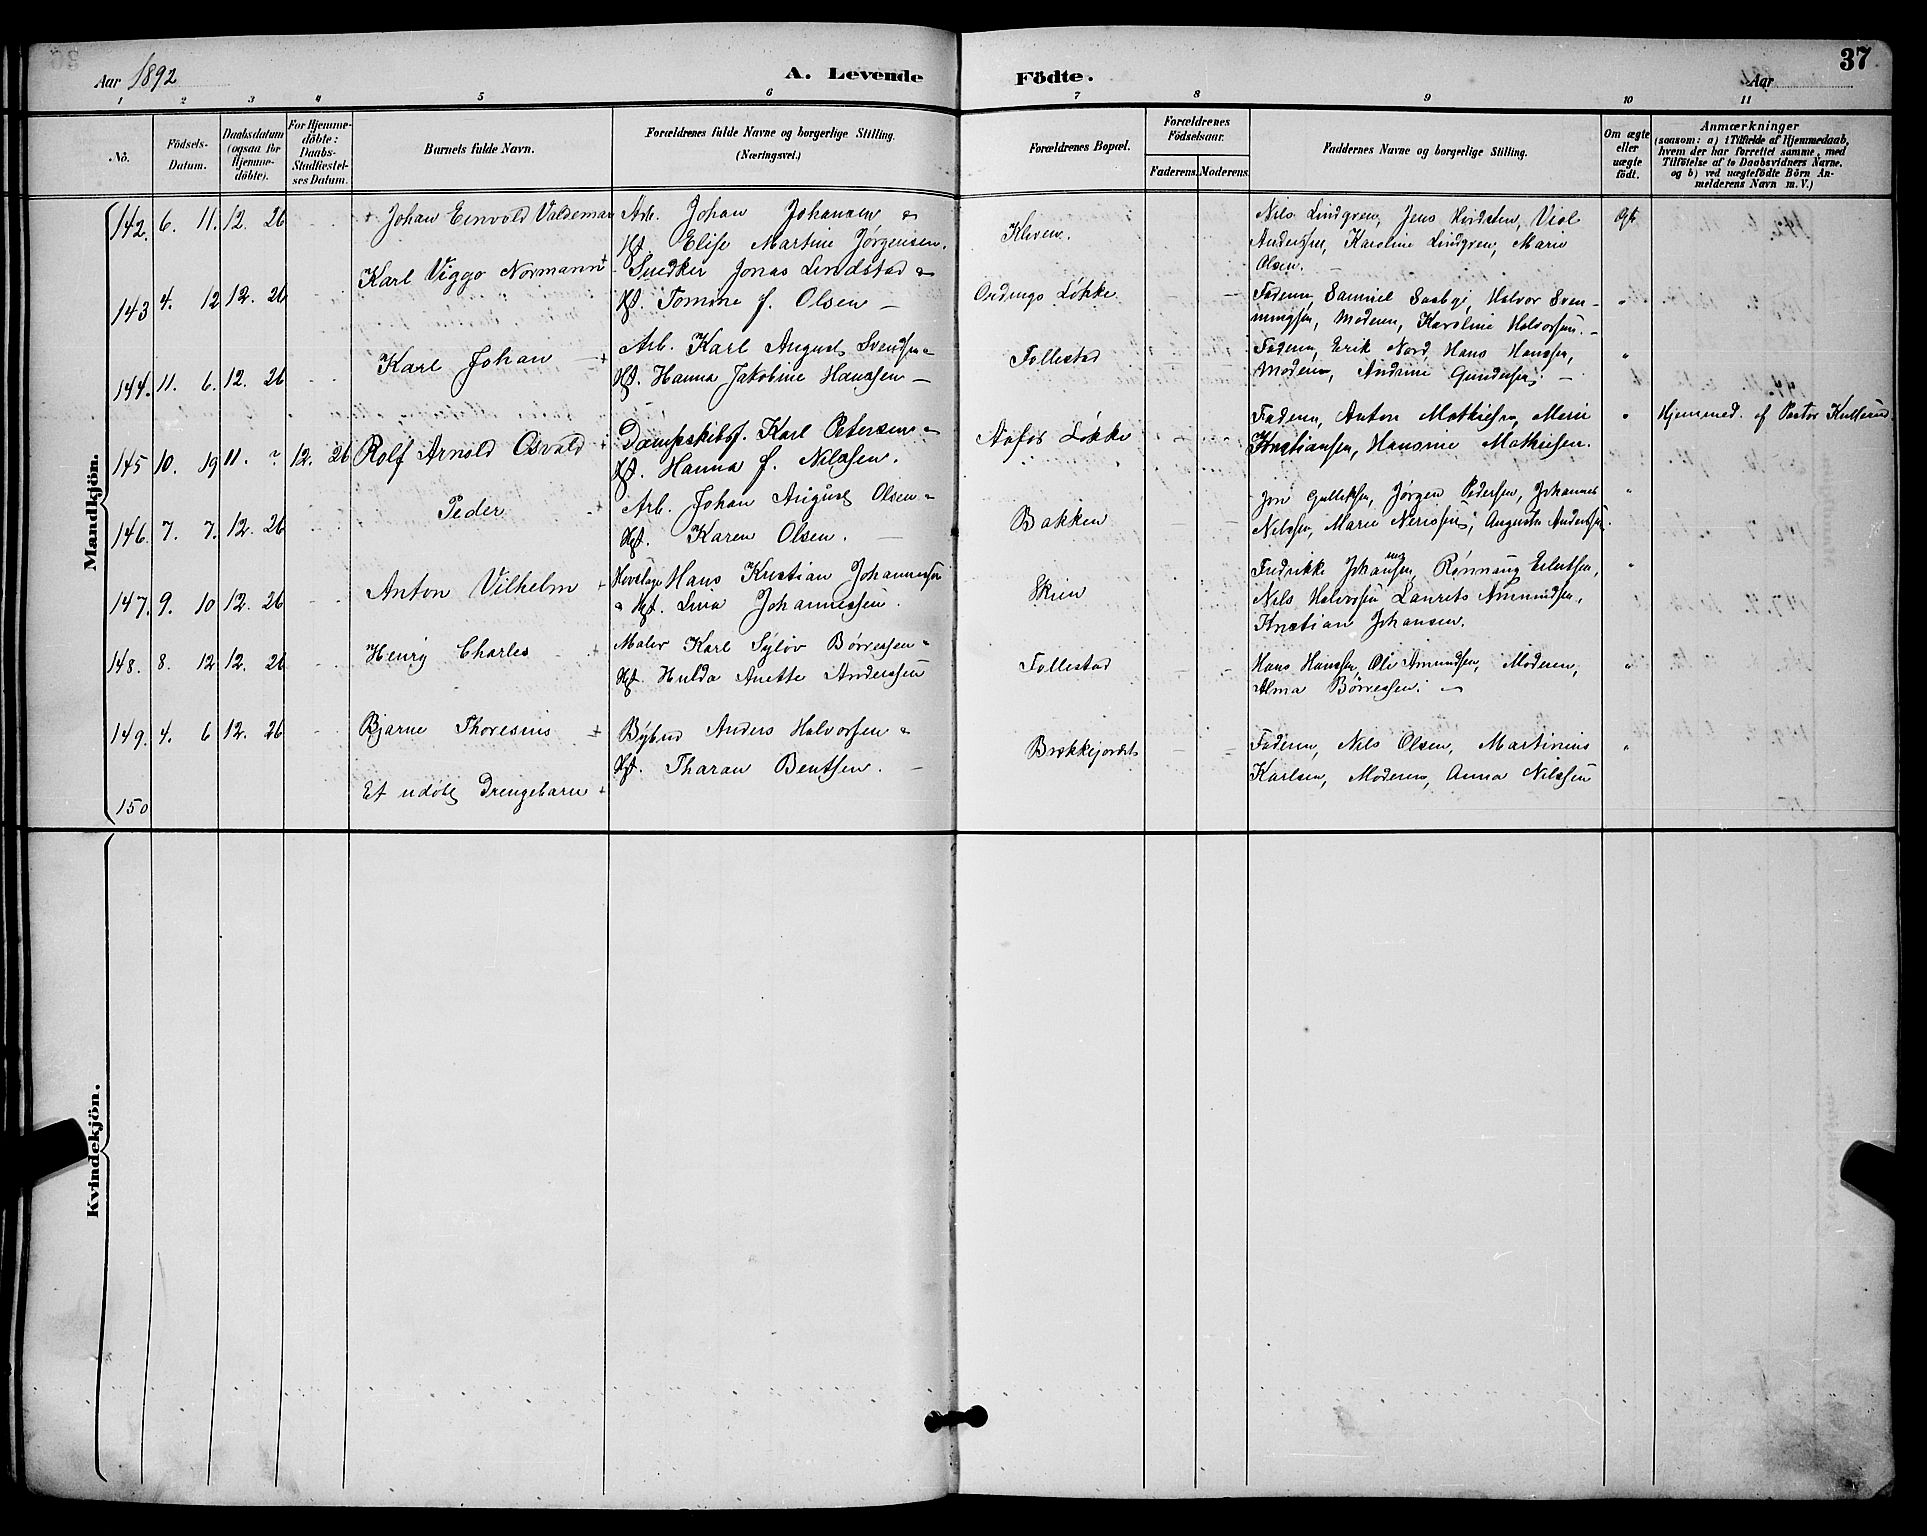 37
Aar 1892
A. Levende Födte.
Aar
1 2 3 4 5 6 7 8 9 10 11
No.
Födsels-Datum.
Daabsdatum (ogsaa for Hjemmedöbte).
For Hjemmedöbte: Daabs-Stadfæstelses Datum.
Barnets fulde Navn.
Forældrenes fulde Navne og borgerlige Stilling. (Næringsvei.)
Forældrenes Bopæl.
Forældrenes Födselsaar.
Faderens. Moderens.
Faddernes Navne og borgerlige Stilling.
Om ægte eller uægte födt.
Anmærkninger
(saasom: a) i Tilfælde af Hjemmedaab, hvem der har forrettet samme, med Tilföielse af to Daabsvidners Navne, og b) ved uægtefödte Börn Anmelderens Navn m. V.)
Mandkjön.
142. 6. 11. 12. 26 Johan Einvald Valdemar
Arb. Johan Johansen &
Hf. Elise Martine Jørgensen.
Kleven.
Nils Lindgren, Jens Hvidsten,
Andersen, Karoline Lindgren, Marie
Olsen.
Ægte
143 4. 12 12. 26 Karl Viggo Normann +
Snedker Jonas Lindstad &
Hf. Tomine f. Olsen —
Ordings Løkke
Faderen, Samuel Saaby, Halvor Sven-
ningsen, Moderen, Karoline Halvorsen. —
"
144. 11. 6. 12. 26 Karl Johan +
Arb. Karl August Svendsen &
Hf. Hanna Jakobine Hanssen —
Follestad
Faderen, Erik Nord, Hans Hanssen,
Moderen, Andrine Gundersen. —
"
145 10. 19 11. ? 12. 26 Rolf Arnold Osvald +
Dampskibsf. Karl Petersen &
Hf. Hanna f. Nilssen.
Aafos Løkke
Faderen, Anton Mathisen, Marie
Kristiansen, Hansine Mathiesen.
"
Hjemmed. af Pastor
146. 7. 7. 12. 26 Peder +
Arb. Johan August Olsen &
Hf. Karen Olsen. —
Bakken
Jon Gulliksen, Jørgen Pedersen, Johannes
Nilssen, Marie Nerissen, Augusta Anderssen.
"
147. 9. 10 12. 26 Anton Vilhelm +
Hans Kristian Johannessen
& Hf. Lina Johannessen.
Skien
Fredrikke Johansen, Rønnaug Eilertsen,
Nils Halvorsen Laurits Amundsen,
Kristian Johansen.
"
148. 8. 12 12. 26 Henry Charles +
Maler Karl Syløv Børresen &
Hf. Hulda Anette Anderssen
Follestad
Hans Hanssen, Ole Amundsen, Moderen,
Alma Børresen. —
"
149. 4. 6 12. 26 Bjarne Thoresius +
Bybud Anders Halvorsen &
Hf. Tharan Bentsen. —
Brekkejordet
Faderen, Nils Olsen, Martinius
Karlsen, Moderen, Anna Nilssen
"
150 Et udøbt Drengebarn +
Kvindekjön.